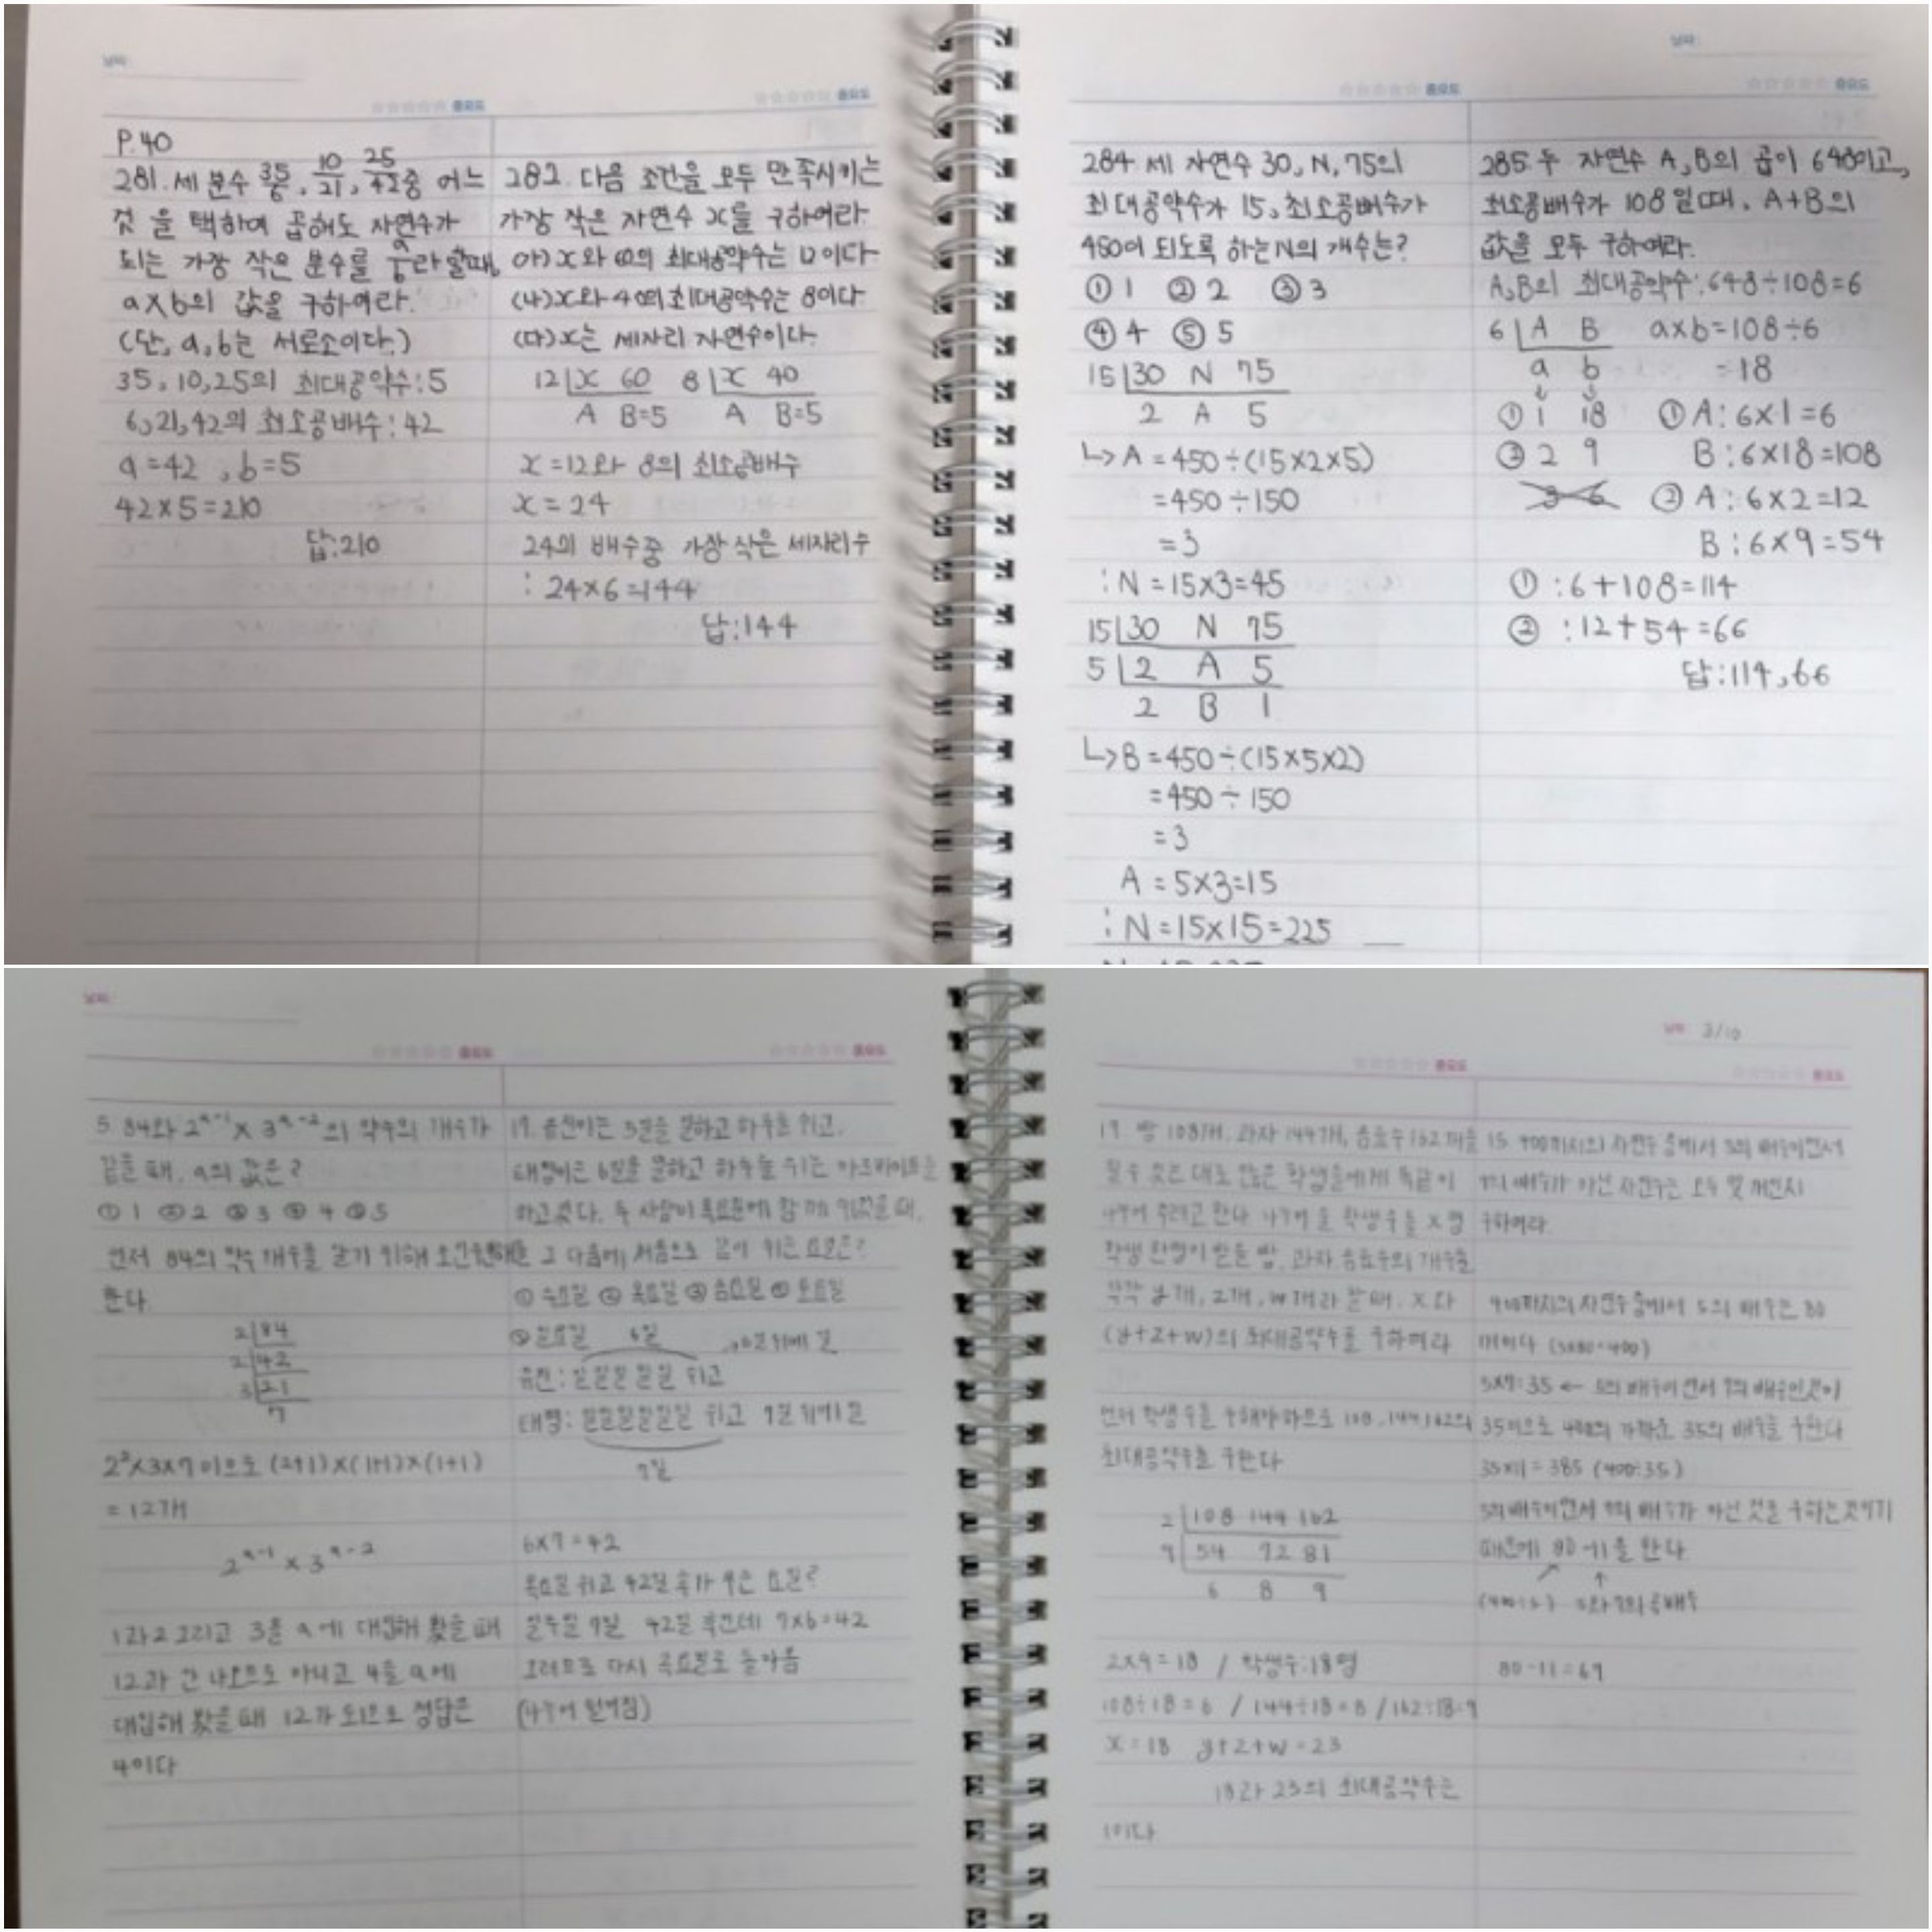 P.40
281. 세 분수 35/6, 10/21, 25/42중 어느
것 을 택하여 곱해도 자연수가
되는 가장 작은 분수를 a/b라 할때,
a×b의 값을 구하여라.
(단, a, b는 서로소이다.)
35, 10, 25의 최대공약수: 5
6, 21, 42의 최소공배수: 42
a=42, b=5
42×5=210
답:210
282. 다음 조건을 모두 만족시키는
가장 작은 자연수 x를 구하여라.
(가) x와 60의 최대공약수는 12이다
(나) x와 40의 최대공약수는 8이다
(다) x는 세자리 자연수이다.
12 x 60 8 x 40
A B=5 A B=5
x=12와 8의 최소공배수
x=24
24의 배수중 가장 작은 세자리수
: 24×6=144
답:144
284. 세 자연수 30, N, 75의
최대공약수가 15, 최소공배수가
450이 되도록 하는 N의 개수는?
① 1 ② 2 ③ 3
④ 4 ⑤ 5
15 30 N 75
2 A 5
↳ A = 450÷(15×2×5)
=450÷150
=3
: N = 15×3=45
15 30 N 75
5 2 A 5
2 B 1
↳ B = 450÷(15×5×2)
=450÷150
=3
A = 5×3=15
: N=15×15=225
285. 두 자연수 A, B의 곱이 648이고,
최소공배수가 108일 때, A+B의
값을 모두 구하여라.
A, B의 최대공약수: 648÷108=6
6 A B a×b=108÷6
a b =18
① 1 18 ① A: 6×1=6
② 2 9 B: 6×18=108
3 6 ② A: 6×2=12
B: 6×9=54
① : 6+108=114
② : 12+54=66
답:114, 66
5. 84와 2^(a-1) × 3^(a-2)의 약수의 개수가
같을 때, a의 값은?
① 1 ② 2 ③ 3 ④ 4 ⑤ 5
먼저 84의 약수 개수를 알기 위해 소인수분해를
한다
2 84
2 42
3 21
7
2²×3×7이므로 (2+1)×(1+1)×(1+1)
=12개
2^(a-1) × 3^(a-2)
1과 2 그리고 3을 a에 대입해 봤을 때
12가 안 나오므로 아니고 4를 a에
대입해 봤을 때 12가 되므로 정답은
4이다
5일을 일하고 하루를 쉬고,
6일을 일하고 하루를 쉬는 아르바이트를
하고 있다. 두 사람이 목요일에 함께 쉬었을 때,
그 다음에 처음으로 같이 쉬는 요일은?
① 수요일 ② 목요일 ③ 금요일 ④ 토요일
⑤ 일요일 6일
일일일일일 쉬고
일일일일일일 쉬고
7일
6×7=42
목요일 쉬고 42일 후가 무슨 요일?
일주일 7일 42일 후인데 7×6=42
그러므로 다시 목요일로 돌아옴
2/10
빵 108개, 과자 144개, 음료수 162개를
될 수 있는 대로 많은 학생들에게 똑같이
나누어 주려고 한다. 나누어 줄 학생 수를 x명
학생 한명이 받을 빵, 과자, 음료수의 개수를
각각 y개, z개, w개라 할 때, x와
(y+z+w)의 최대공약수를 구하여라
먼저 학생 수를 구해야 하므로 108, 144, 162의
최대공약수를 구한다
2 108 144 162
9 54 72 81
6 8 9
2×9=18 / 학생수:18명
108÷18=6 / 144÷18=8 / 162÷18=9
x=18 y+z+w=23
18과 23의 최대공약수는
1이다
15. 400까지의 자연수 중에서 5의 배수이면서
7의 배수가 아닌 자연수는 모두 몇 개인지
구하여라.
400까지의 자연수 중에서 5의 배수는 80
개이다 (5×80=400)
5×7=35 ← 5의 배수이면서 7의 배수인 것이
35이므로 400의 가까운 35의 배수를 구한다
35×11=385 (400÷35)
5의 배수이면서 7의 배수가 아닌 것을 구하는 것이기
때문에 80-11을 한다
(400÷5) 5와 7의 공배수
80-11=69